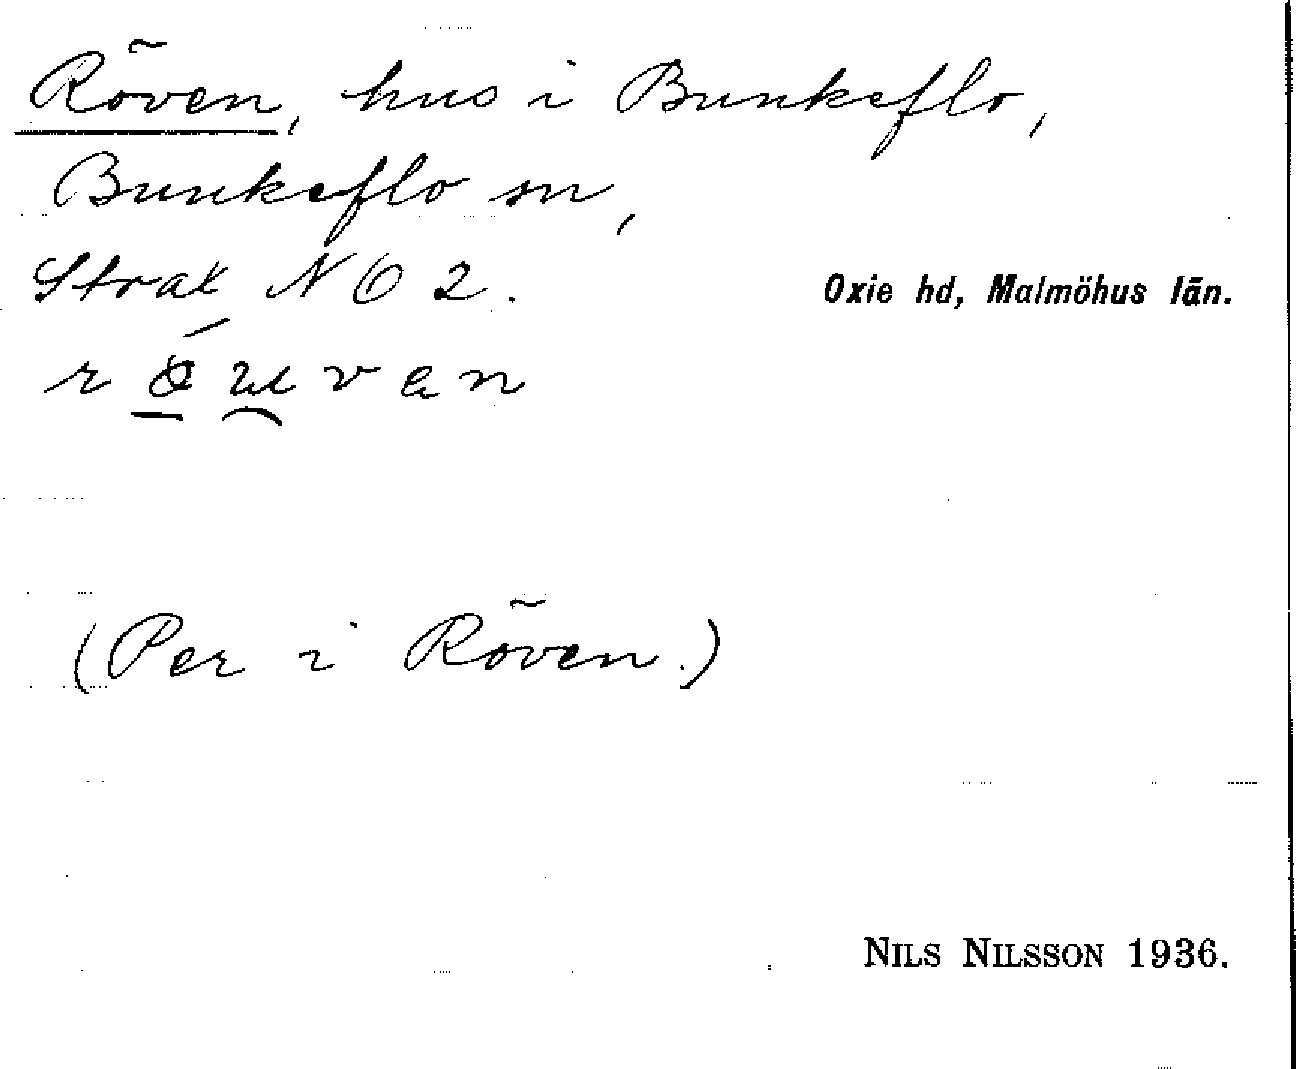 Röven, hus i Bunkeflo,
Bunkeflo sn,
Strak NO 2.
Oxie hd, Malmöhus län.
(Per i Röven.)
NILS NILSSON 1936.